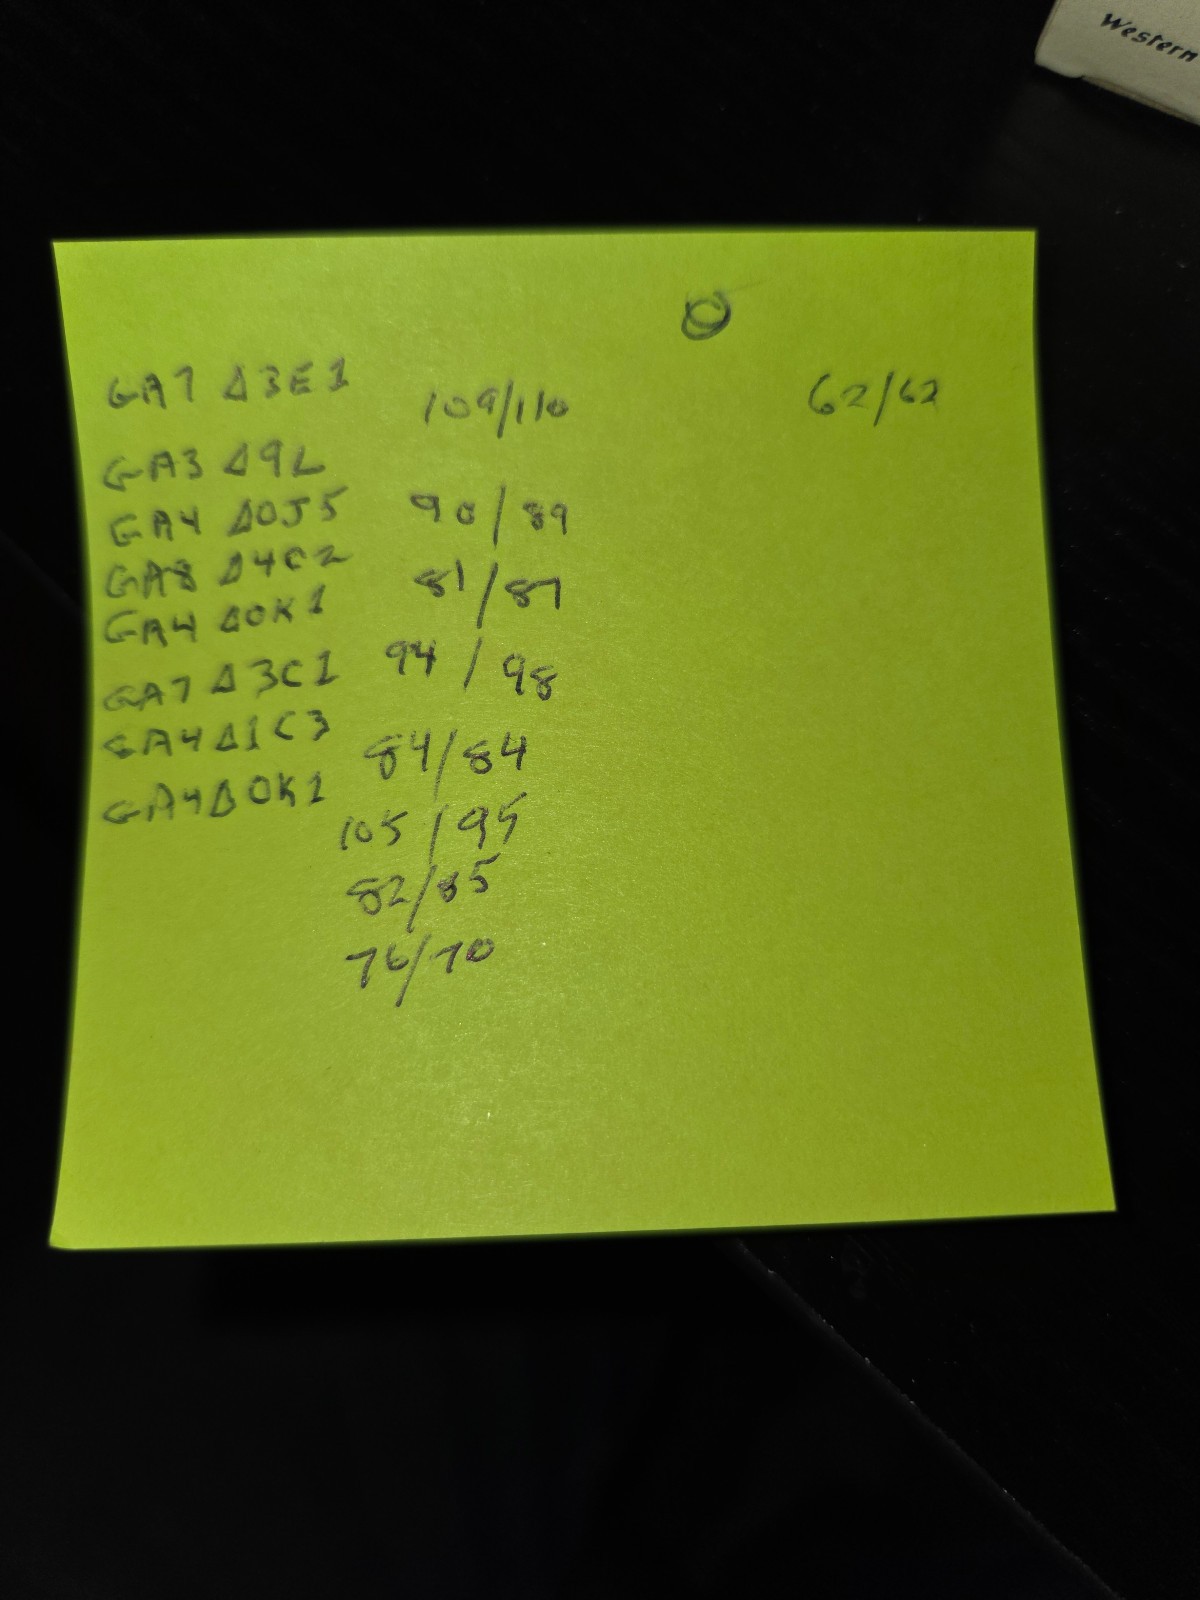 Western
O
GA7 Δ3E1 109/110 62/62
GA3 Δ9L
GA4 Δ0J5 90/89
GA8 Δ4C2 81/87
GA4 Δ0K1
GA7 Δ3C1 94/98
GA4Δ1C3 84/84
GA4Δ0K1
105/95
82/85
76/70